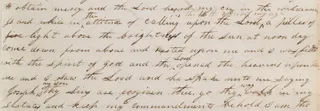 to obtain mercy and the Lord heard my cry in the wilderness
and while in the attitude of calling upon the Lord a pillar of
fire light above the brightness of the sun at noon day
come down from above and rested upon me and I was filled
with the spirit of god and the Lord opened the heavens upon
me and I saw the Lord and he spake unto me saying
Joseph my son thy sins are forgiven thee. go thy way walk in my
statutes and keep my commandments behold I am the